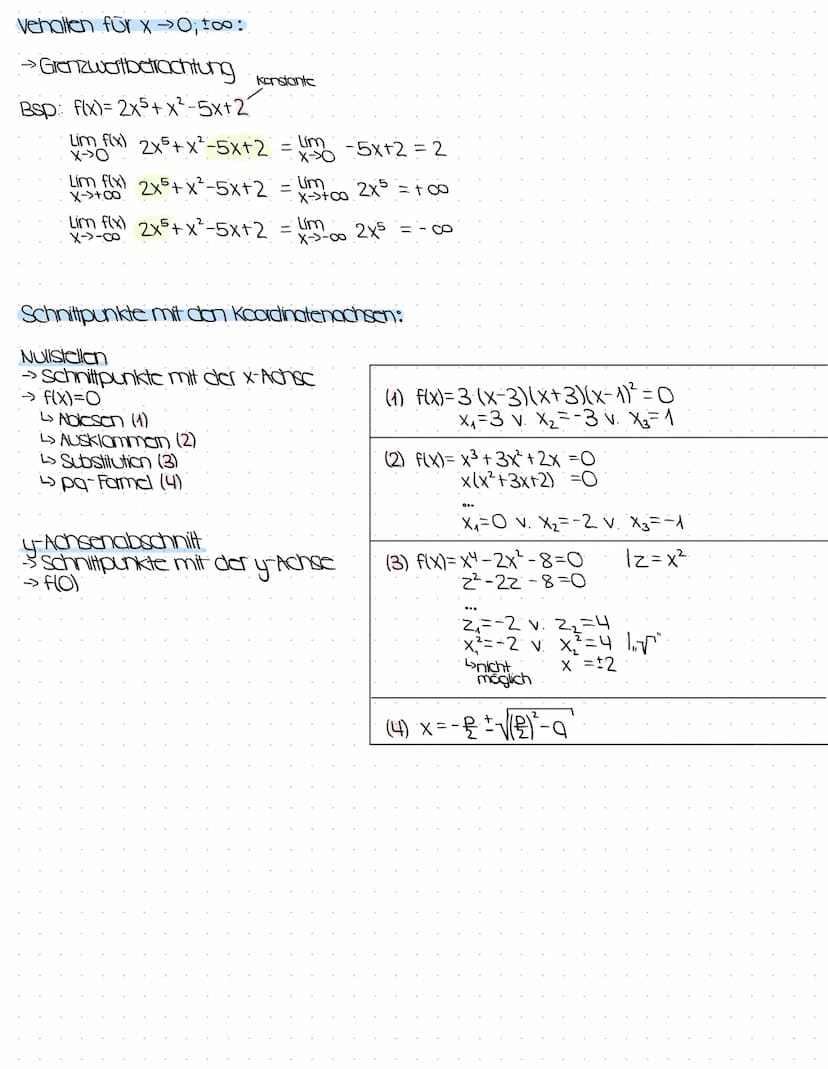 Verhalten für x→0; ±∞:
→ Grenzwertbetrachtung
Konstante
Bsp: f(x) = 2x⁵ + x² - 5x + 2
lim f(x) x→0 2x⁵ + x² - 5x + 2 = lim x→0 -5x + 2 = 2
lim f(x) x→+∞ 2x⁵ + x² - 5x + 2 = lim x→+∞ 2x⁵ = +∞
lim f(x) x→-∞ 2x⁵ + x² - 5x + 2 = lim x→-∞ 2x⁵ = -∞
Schnittpunkte mit den Koordinatenachsen:
Nullstellen
→ Schnittpunkte mit der x-Achse
→ f(x)=0
↳ Ablesen (1)
↳ Ausklammern (2)
↳ Substitution (3)
↳ pq-Formel (4)
y-Achsenabschnitt
→ Schnittpunkte mit der y-Achse
→ f(0)
(1) f(x) = 3·(x-3)(x+3)(x-1)² = 0
x₁=3 v. x₂=-3 v. x₃=1
(2) f(x) = x³ + 3x² + 2x = 0
x(x² + 3x + 2) = 0
...
x₁=0 v. x₂=-2 v. x₃=-1
(3) f(x) = x⁴ - 2x² - 8 = 0 | z = x²
z² - 2z - 8 = 0
...
z₁=-2 v. z₂=4
x₁²=-2 v x₂²=4 | „√"
↳ nicht möglich x = ±2
(4) x = -p/2 ± √((p/2)² - q)